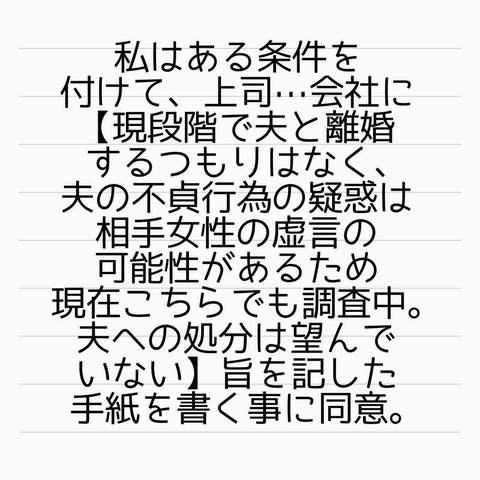 私はある条件を
付けて、上司…会社に
【現段階で夫と離婚
するつもりはなく、
夫の不貞行為の疑惑は
相手女性の虚言の
可能性があるため
現在こちらでも調査中。
夫への処分は望んで
いない】旨を記した
手紙を書く事に同意。